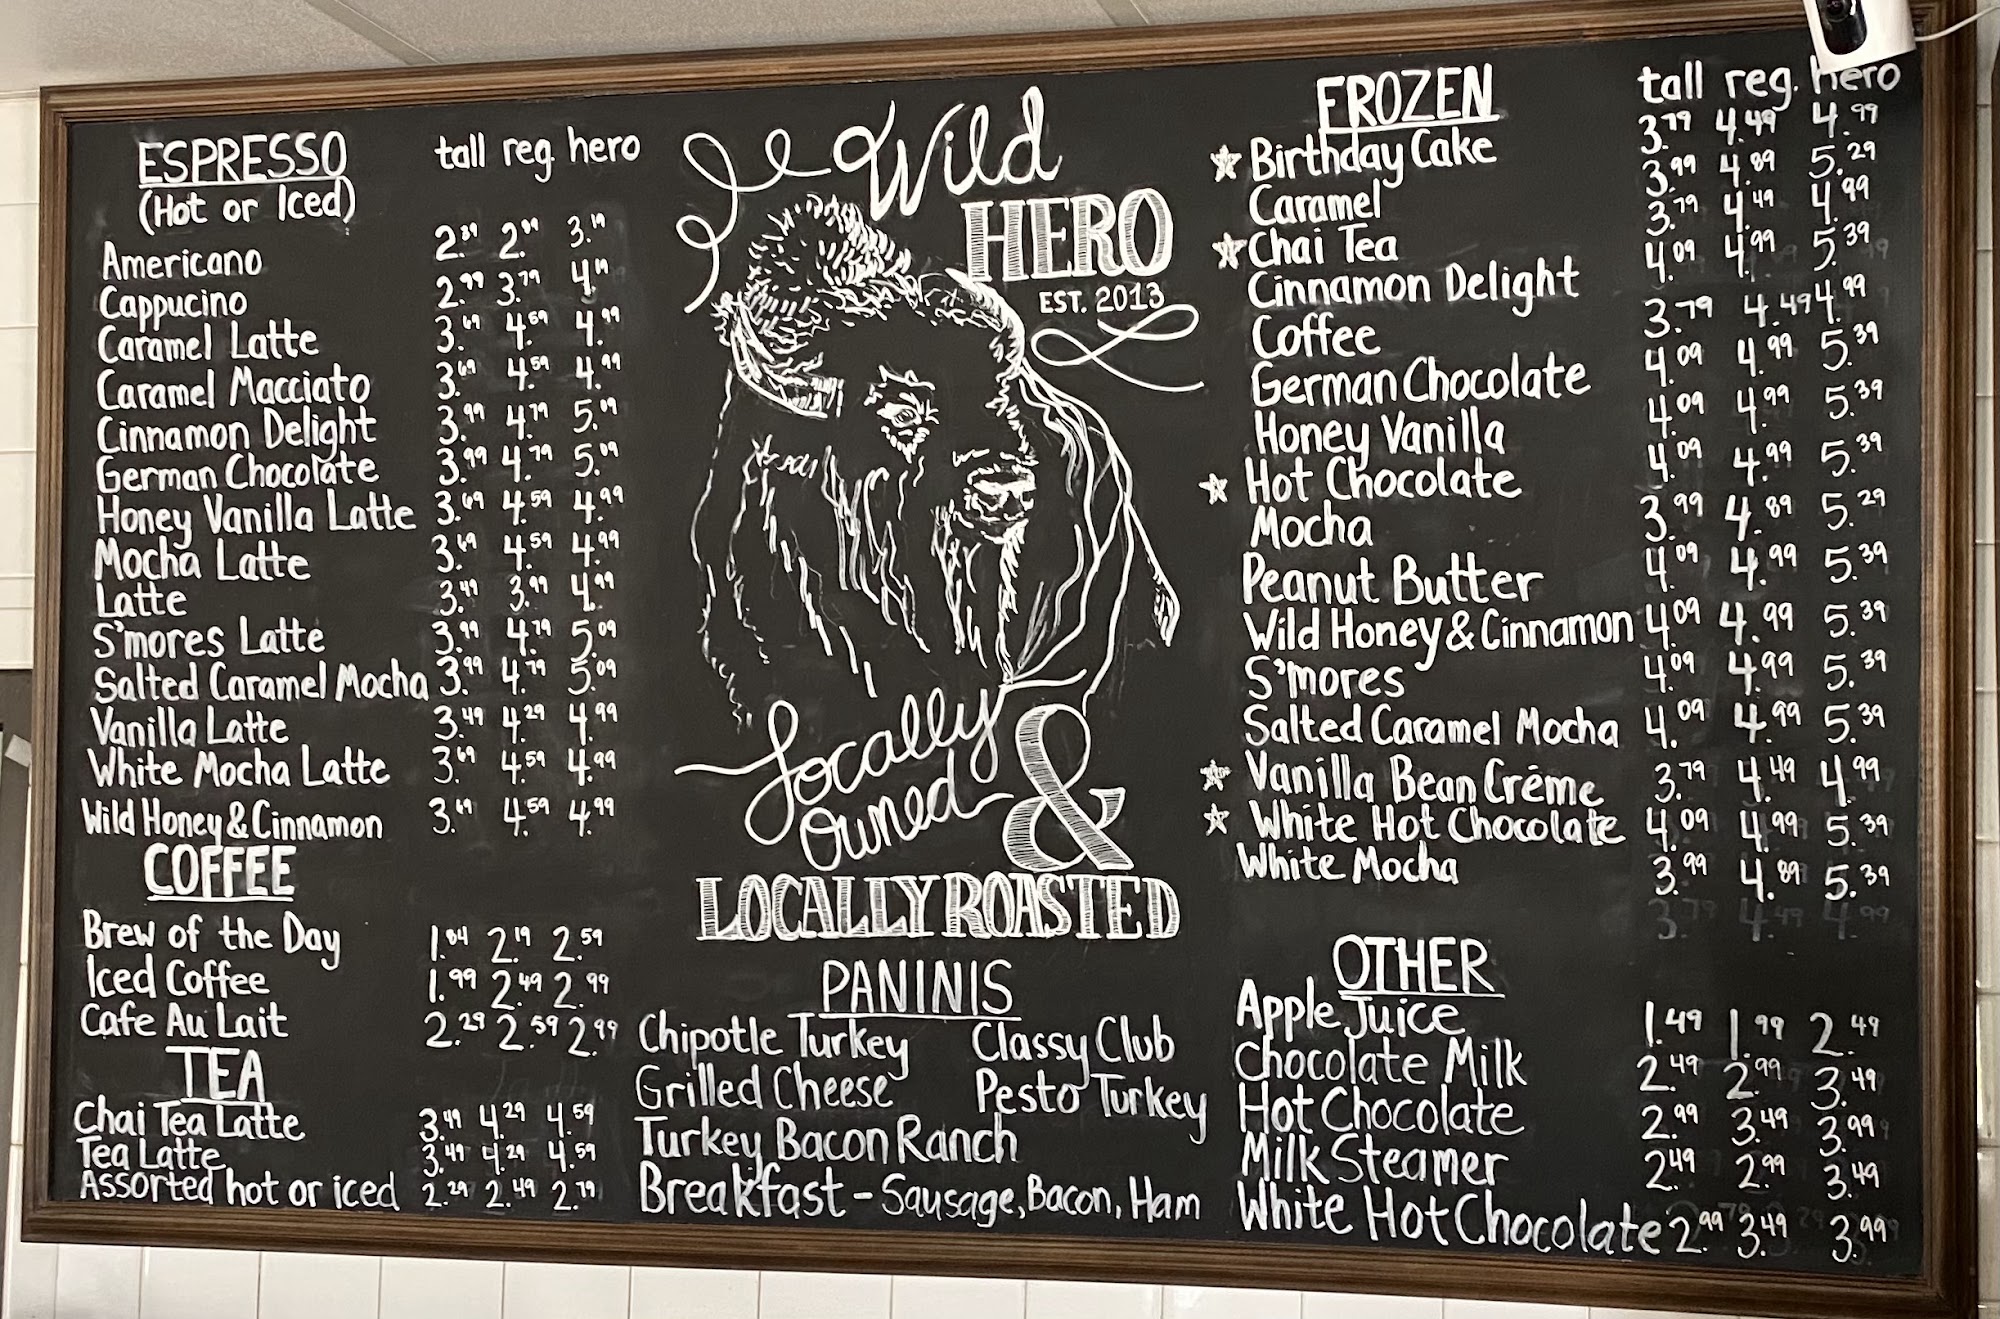 ESPRESSO tall reg. hero
(Hot or Iced)
Americano 2.39 2.89 3.19
Cappucino 2.99 3.79 4.19
Caramel Latte 3.69 4.59 4.99
Caramel Macciato 3.69 4.59 4.99
Cinnamon Delight 3.99 4.79 5.09
German Chocolate 3.99 4.79 5.09
Honey Vanilla Latte 3.69 4.59 4.99
Mocha Latte 3.69 4.59 4.99
Latte 3.49 3.99 4.99
S'mores Latte 3.99 4.79 5.09
Salted Caramel Mocha 3.99 4.79 5.09
Vanilla Latte 3.49 4.29 4.99
White Mocha Latte 3.69 4.59 4.99
Wild Honey & Cinnamon 3.69 4.59 4.99
COFFEE
Brew of the Day 1.84 2.19 2.59
Iced Coffee 1.99 2.49 2.99
Cafe Au Lait 2.29 2.59 2.99
TEA
Chai Tea Latte 3.49 4.29 4.59
Tea Latte 3.49 4.29 4.59
Assorted hot or iced 2.29 2.49 2.79
Wild
HERO
EST. 2013
Locally
Owned &
LOCALLY ROASTED
PANINIS
Chipotle Turkey Classy Club
Grilled Cheese Pesto Turkey
Turkey Bacon Ranch
Breakfast - Sausage, Bacon, Ham
FROZEN tall reg. hero
Birthday Cake 3.79 4.49 4.99
Caramel 3.99 4.89 5.29
Chai Tea 3.79 4.49 4.99
Cinnamon Delight 4.09 4.99 5.39
Coffee 3.79 4.49 4.99
German Chocolate 4.09 4.99 5.39
Honey Vanilla 4.09 4.99 5.39
Hot Chocolate 4.09 4.99 5.39
Mocha 3.99 4.89 5.29
Peanut Butter 4.09 4.99 5.39
Wild Honey & Cinnamon 4.09 4.99 5.39
S'mores 4.09 4.99 5.39
Salted Caramel Mocha 4.09 4.99 5.39
Vanilla Bean Crème 3.79 4.49 4.99
White Hot Chocolate 4.09 4.99 5.39
White Mocha 3.99 4.89 5.39
OTHER
Apple Juice 1.49 1.99 2.49
Chocolate Milk 2.49 2.99 3.49
Hot Chocolate 2.99 3.49 3.99
Milk Steamer 2.49 2.99 3.49
White Hot Chocolate 2.99 3.49 3.99